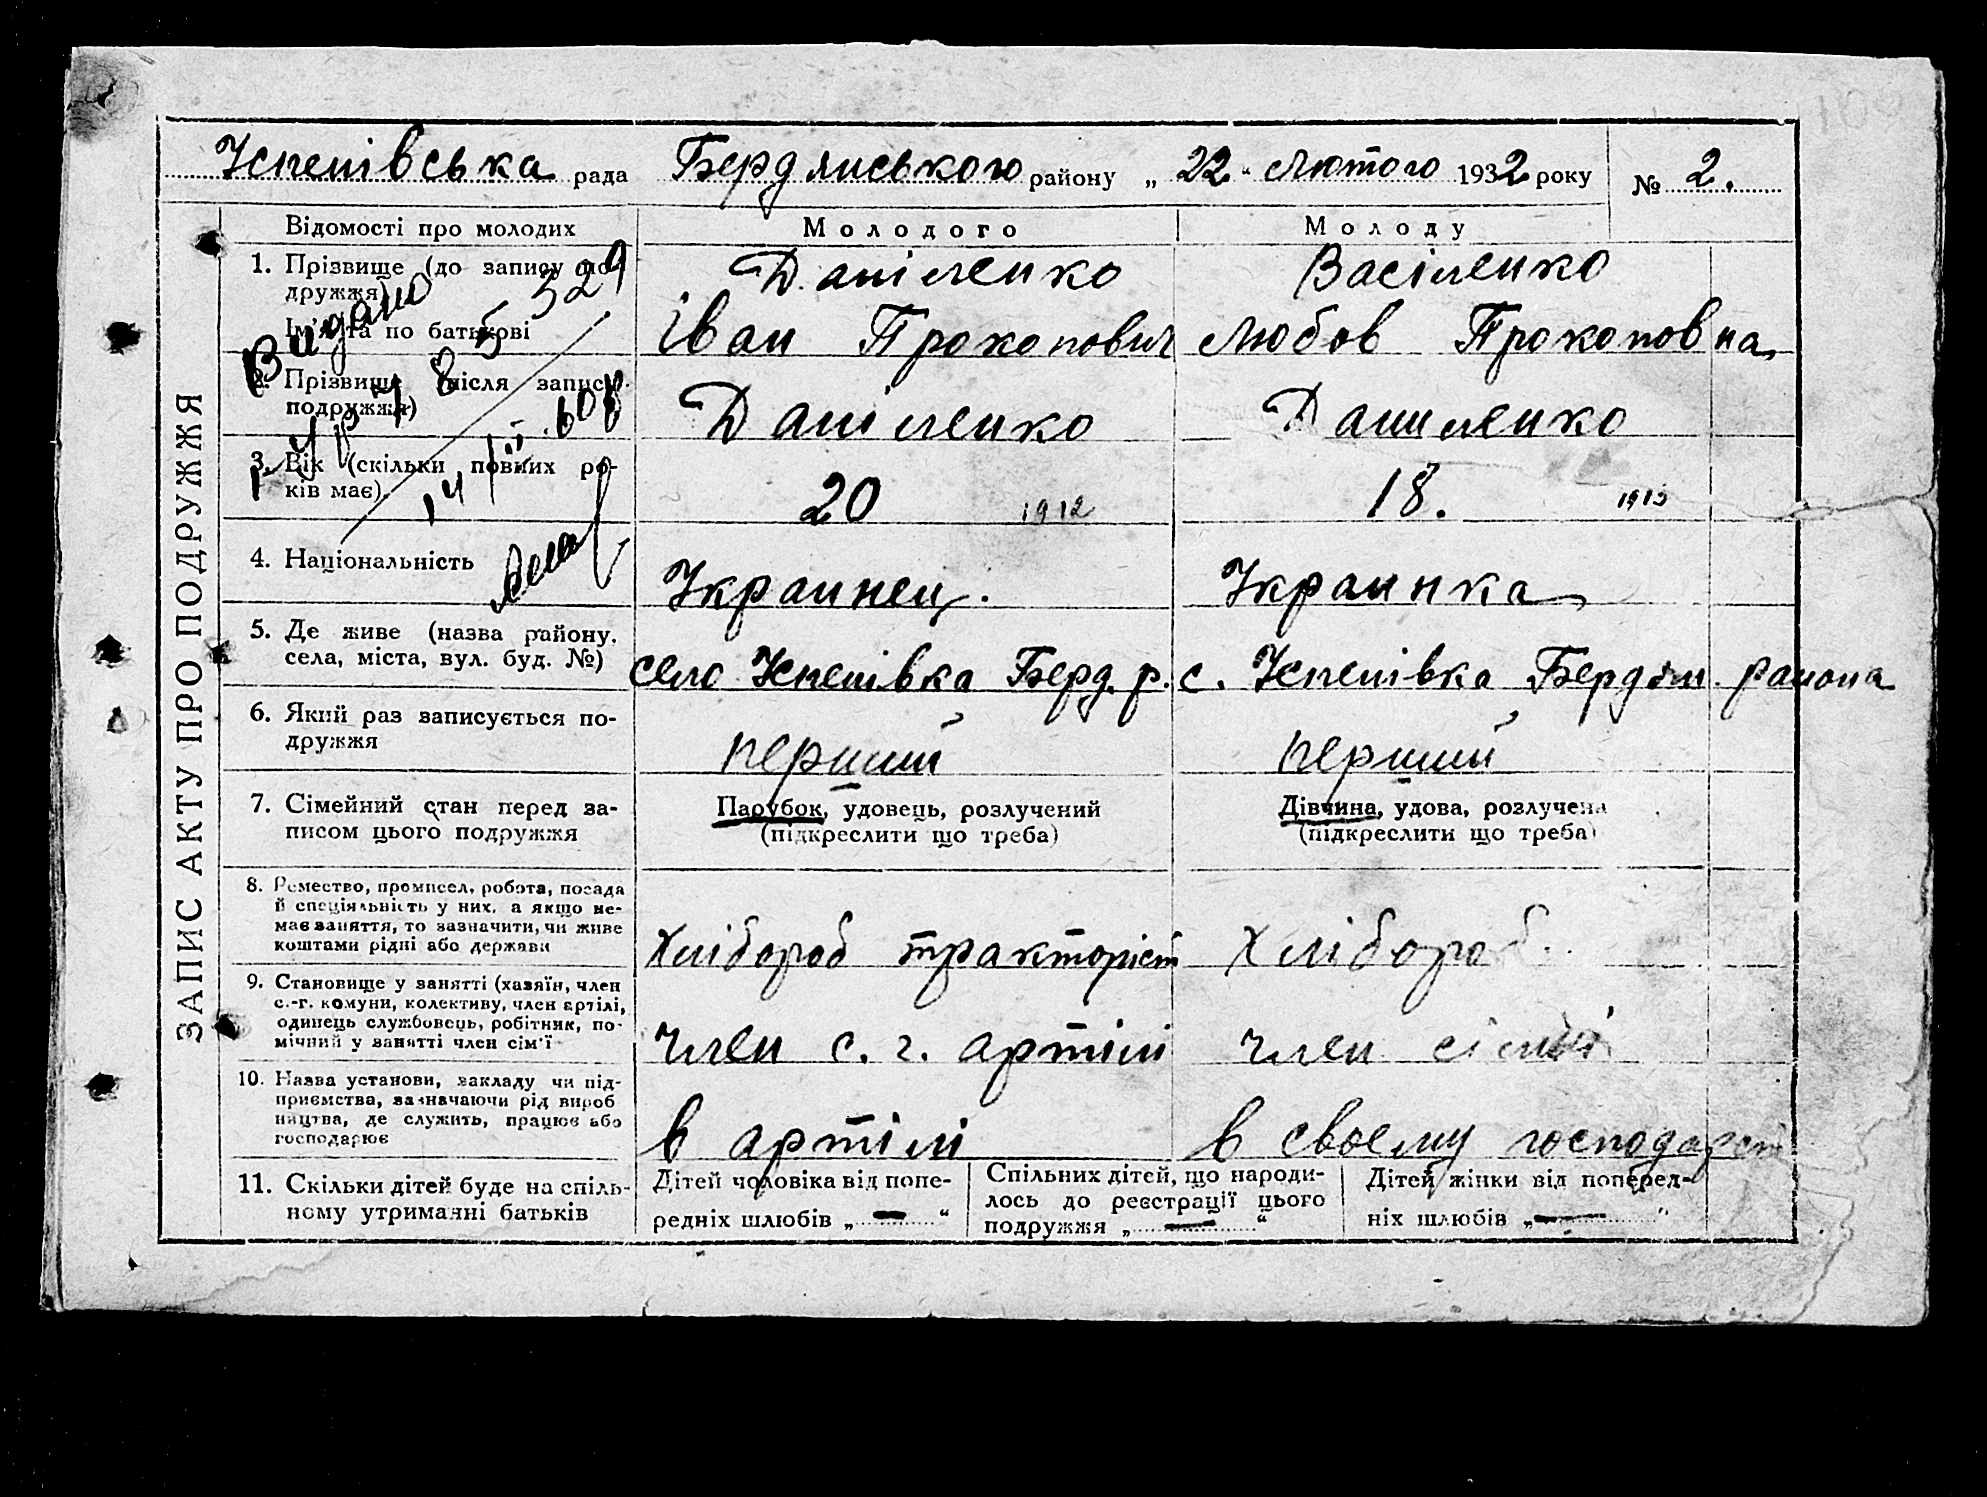 Успенівська рада Бердянського району „ 22 “ Лютого 1932 року № 2.
ЗАПИС АКТУ ПРО ПОДРУЖЖЯ
Відомості про молодих
Молодого
Молоду
1. Прізвище (до запису по-
дружжя)
Ім'я та по батькові
Даніленко
Іван Прокопович
Васіленко
Любов Прокоповна
2. Прізвище (після запису
подружжя)
Даніленко
Даниленко
3. Вік (скільки повних ро-
ків має)
20 1912
18. 1913
4. Національність
Украинец.
Украинка
5. Де живе (назва району,
села, міста, вул. буд. №)
село Успенівка Берд. р.
с. Успенівка Бердян. района
6. Який раз записується по-
дружжя
перший
перший
7. Сімейний стан перед за-
писом цього подружжя
Парубок, удовець, розлучений
(підкреслити що треба)
Дівчина, удова, розлучена
(підкреслити що треба)
8. Ремество, промисел, робота, посада
й спеціяльність у них, а якщо не-
має заняття, то зазначити, чи живе
коштами рідні або держави
Хлібороб тракторіст
Хлібороб
9. Становище у занятті (хазяїн, член
с.-г. комуни, колективу, член артілі,
одинець службовець, робітник, по-
мічний у занятті член сім'ї
член с. г. артілі
член сімї
10. Назва установи, закладу чи під-
приємства, зазначаючи рід вироб
ництва, де служить, працює або
господарює
в артілі
в своему господарст
11. Скільки дітей буде на спіль-
ному утриманні батьків
Дітей чоловіка від попе-
редніх шлюбів „ — “
Спільних дітей, що народи-
лось до реєстрації цього
подружжя „ — “
Дітей жінки від поперед-
ніх шлюбів „ — “
Видано